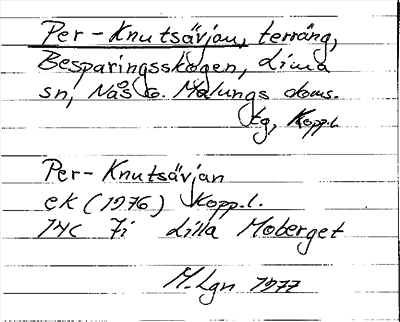 Per-Knutsävjan, terräng,
Besparingsskogen, Lima
sn, Nås o. Malungs doms.
tg, Kopp.l.
Per-Knutsävjan
ek (1976) Kopp.l.
14C 7i Lilla Moberget
M.Lgn 1977